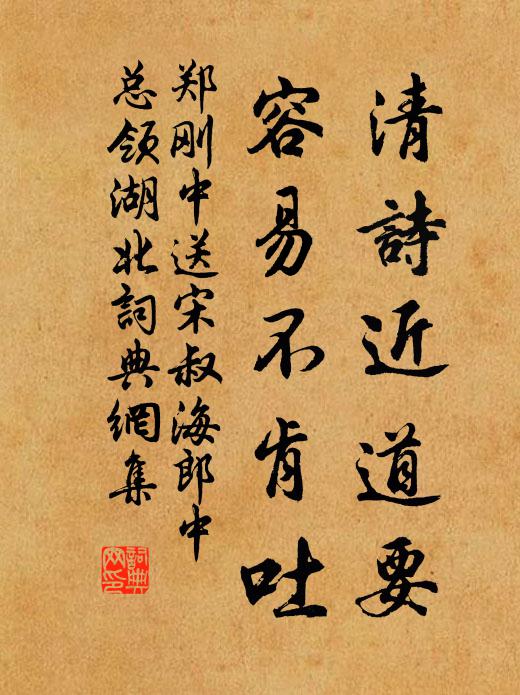 清詩近道要
容易不肯吐
郑刚中送宋叔海郎中
总领湖北詞典網集
詞典
网印